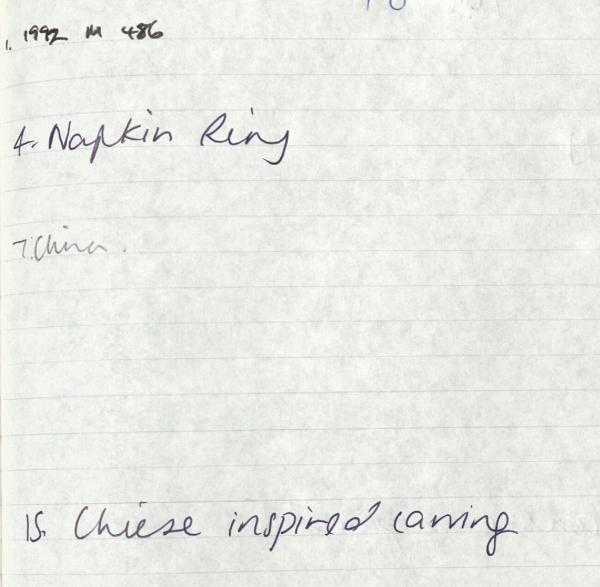 1. 1992 M 486
4. Napkin Ring
7. China.
15. Chiese inspired carving